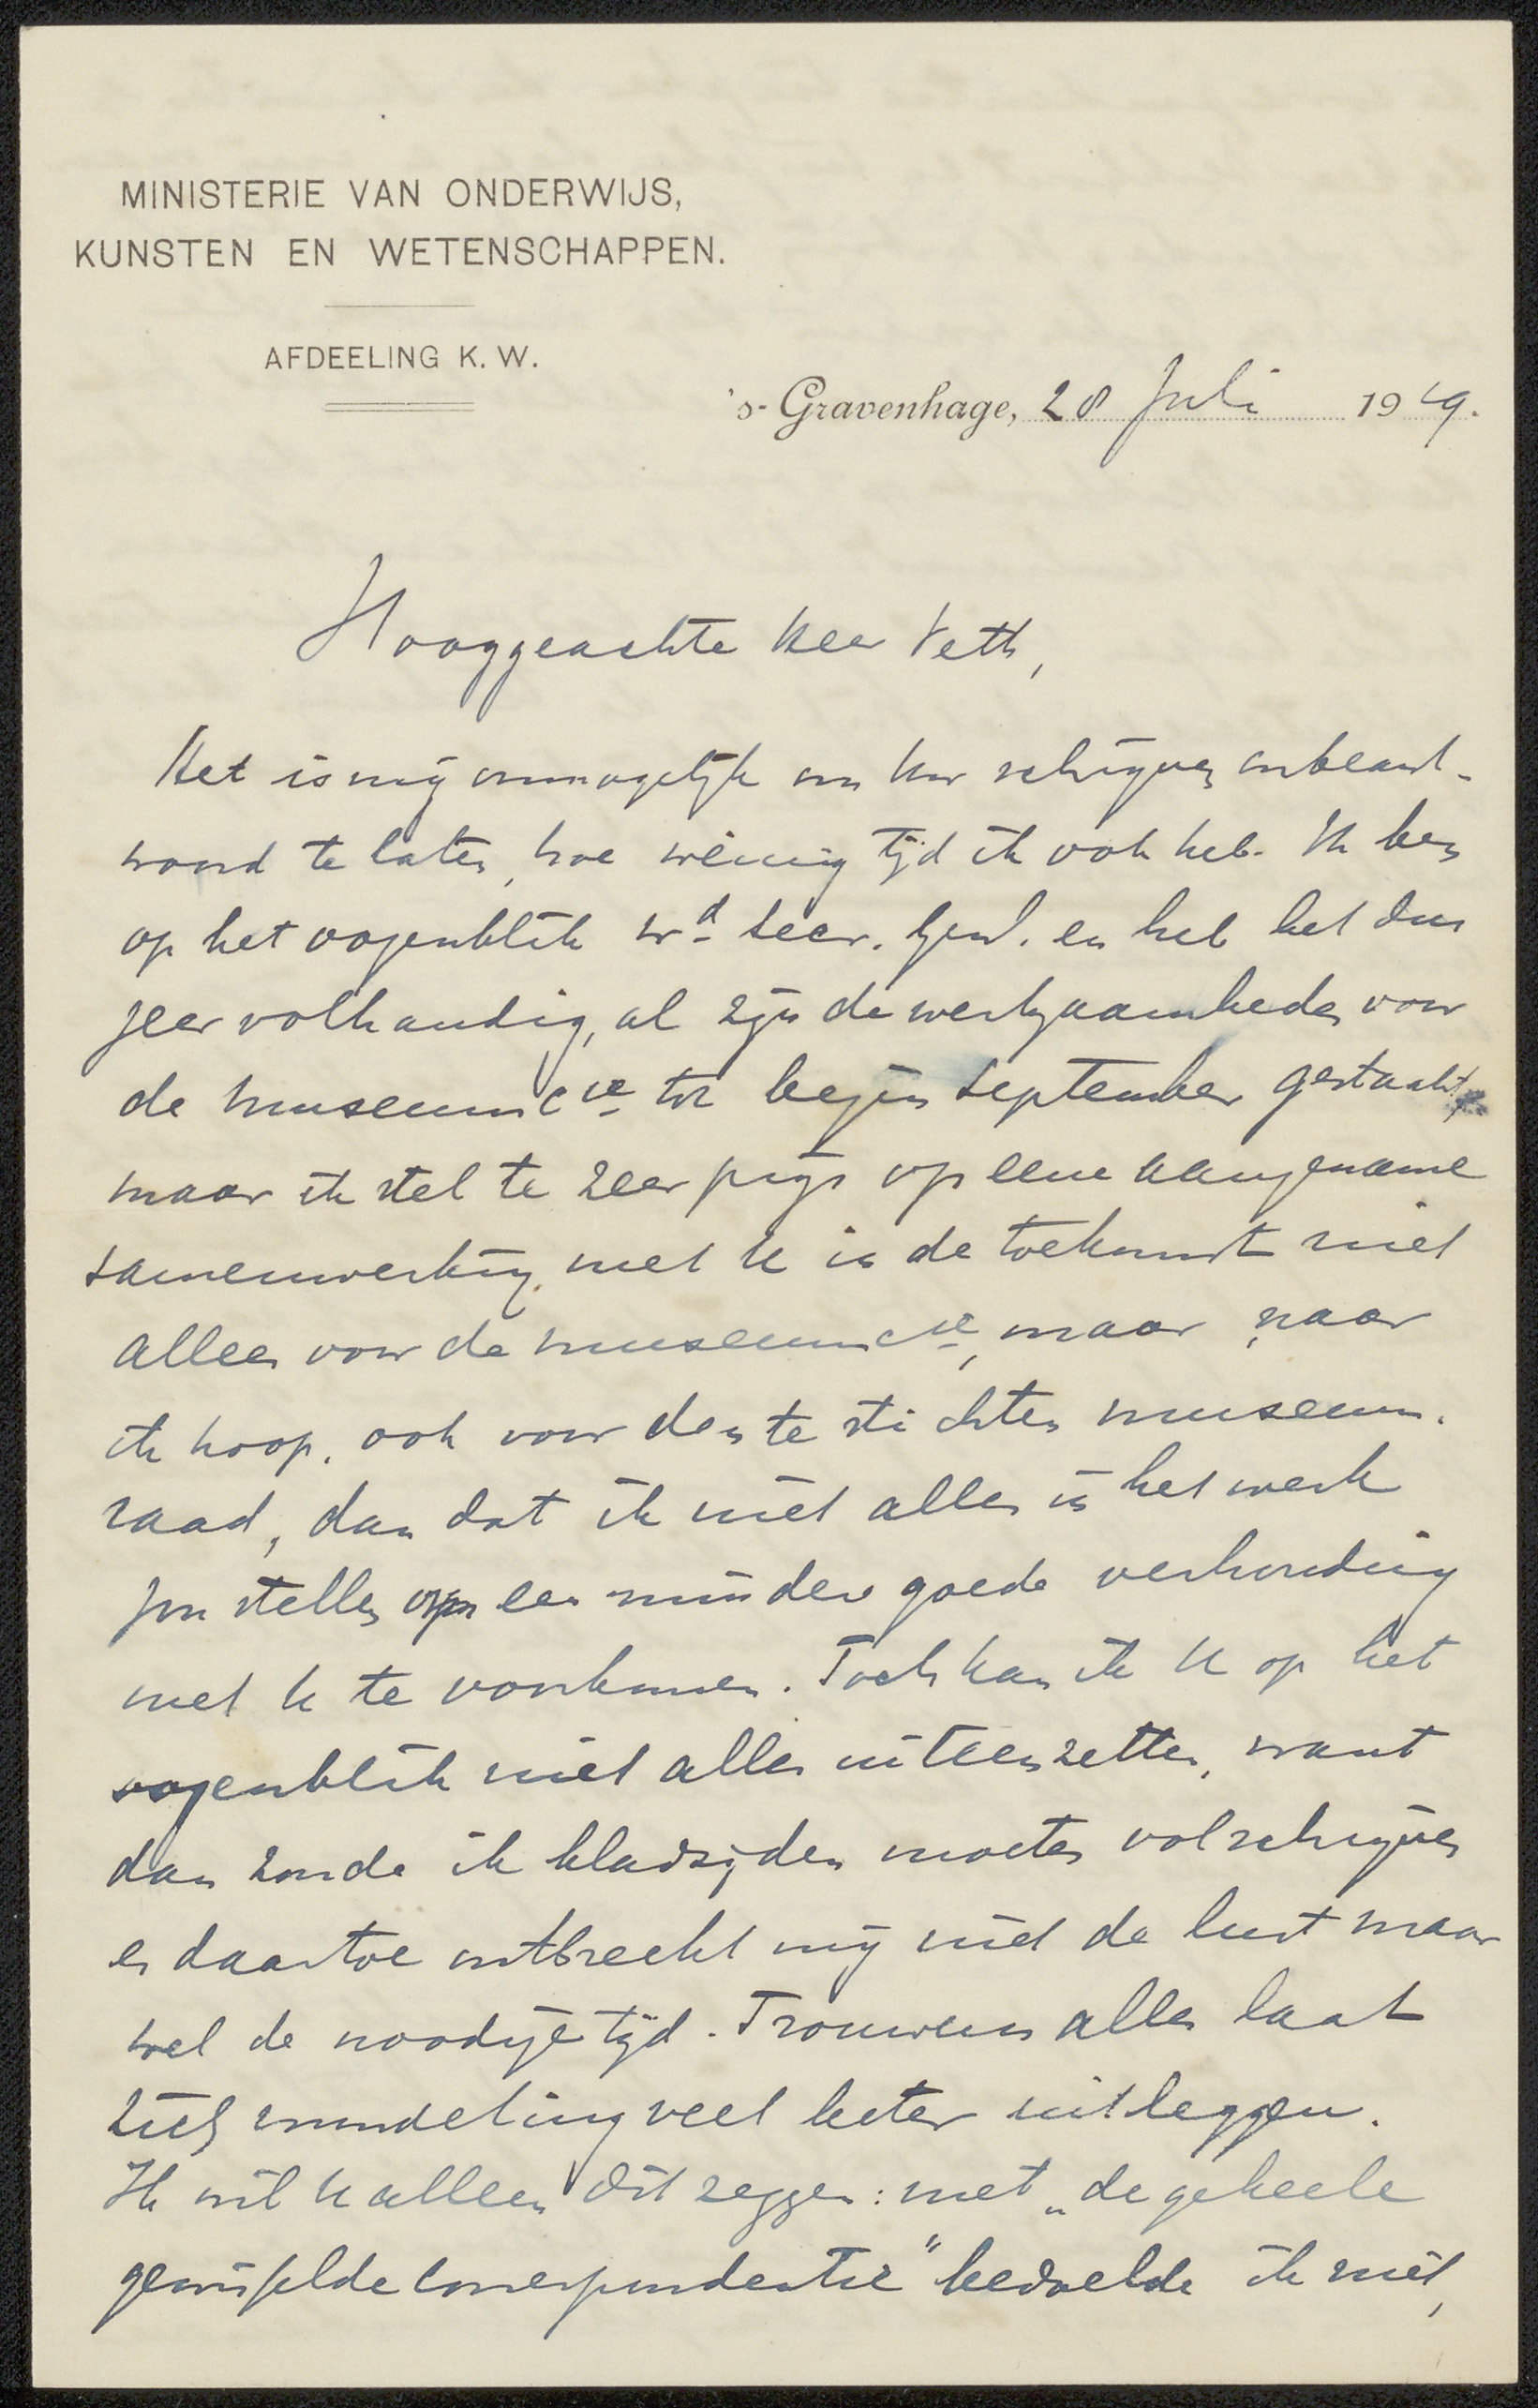 MINISTERIE VAN ONDERWIJS,
KUNSTEN EN WETENSCHAPPEN.
AFDEELING K. W.
's-Gravenhage, 28 Juli 1919.
Hooggeachte Heer Veth,
Het is mij onmogelijk om Uw schrijven onbeant-
woord te laten, hoe weinig tijd ik ook heb. Ik ben
op het oogenblik wd Secr. Gen. en heb het dus
zeer volhandig, al zijn de werkzaamheden voor
de museumcie tot begin September gestaakt,
maar ik stel te zeer prijs op eene aangename
samenwerking met U in de toekomst niet
alleen voor de museumcie, maar naar
ik hoop, ook voor den te stichten museum-
raad, dan dat ik niet alles in het werk
zou stellen om een minder goede verhouding
met U te voorkomen. Toch kan ik U op het
oogenblik niet alles uiteenzetten, want
dan zoude ik bladzijden moeten volschrijven
en daartoe ontbreekt mij niet de lust maar
wel de noodige tijd. Trouwens alles laat
zich mondeling veel beter uitleggen.
Ik wil U alleen dit zeggen: met "de geheele
gewisselde correspondentie" bedoelde ik niet,